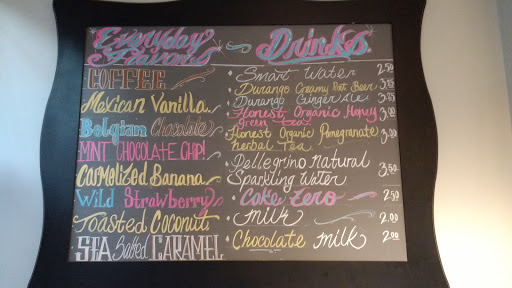 Everyday Flavors
COFFEE
Mexican Vanilla
Belgian Chocolate
MINT CHOCOLATE CHIP!
Carmelized Banana
Wild Strawberry
Toasted Coconut
SEA Salted CARAMEL
Drinks
Smart Water 2.50
Durango Creamy Root Beer 3.25
Durango Ginger Ale 3.25
Honest Organic Honey green tea 3.00
Honest Organic Pomegranate herbal Tea 3.00
Pellegrino Natural
Sparkling Water 3.50
Coke Zero 2.50
milk 2.00
Chocolate milk 2.00